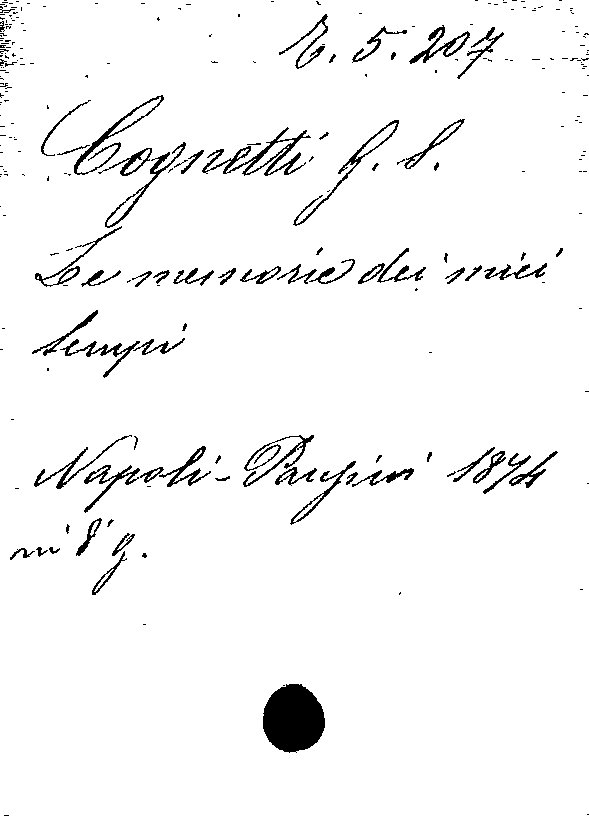 E. 5. 207
Cognetti G. S.
Le memorie dei miei
tempi
Napoli - Pargini 1874
in 8° g.